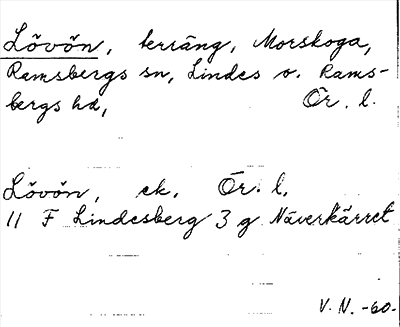 Lövön, terräng, Morskoga,
Ramsbergs sn, Lindes o. Rams-
bergs hd, Ör. l.
Lövön, ek. Ör. l.
11 F Lindesberg 3 g Näverkärret
V. N. -60-